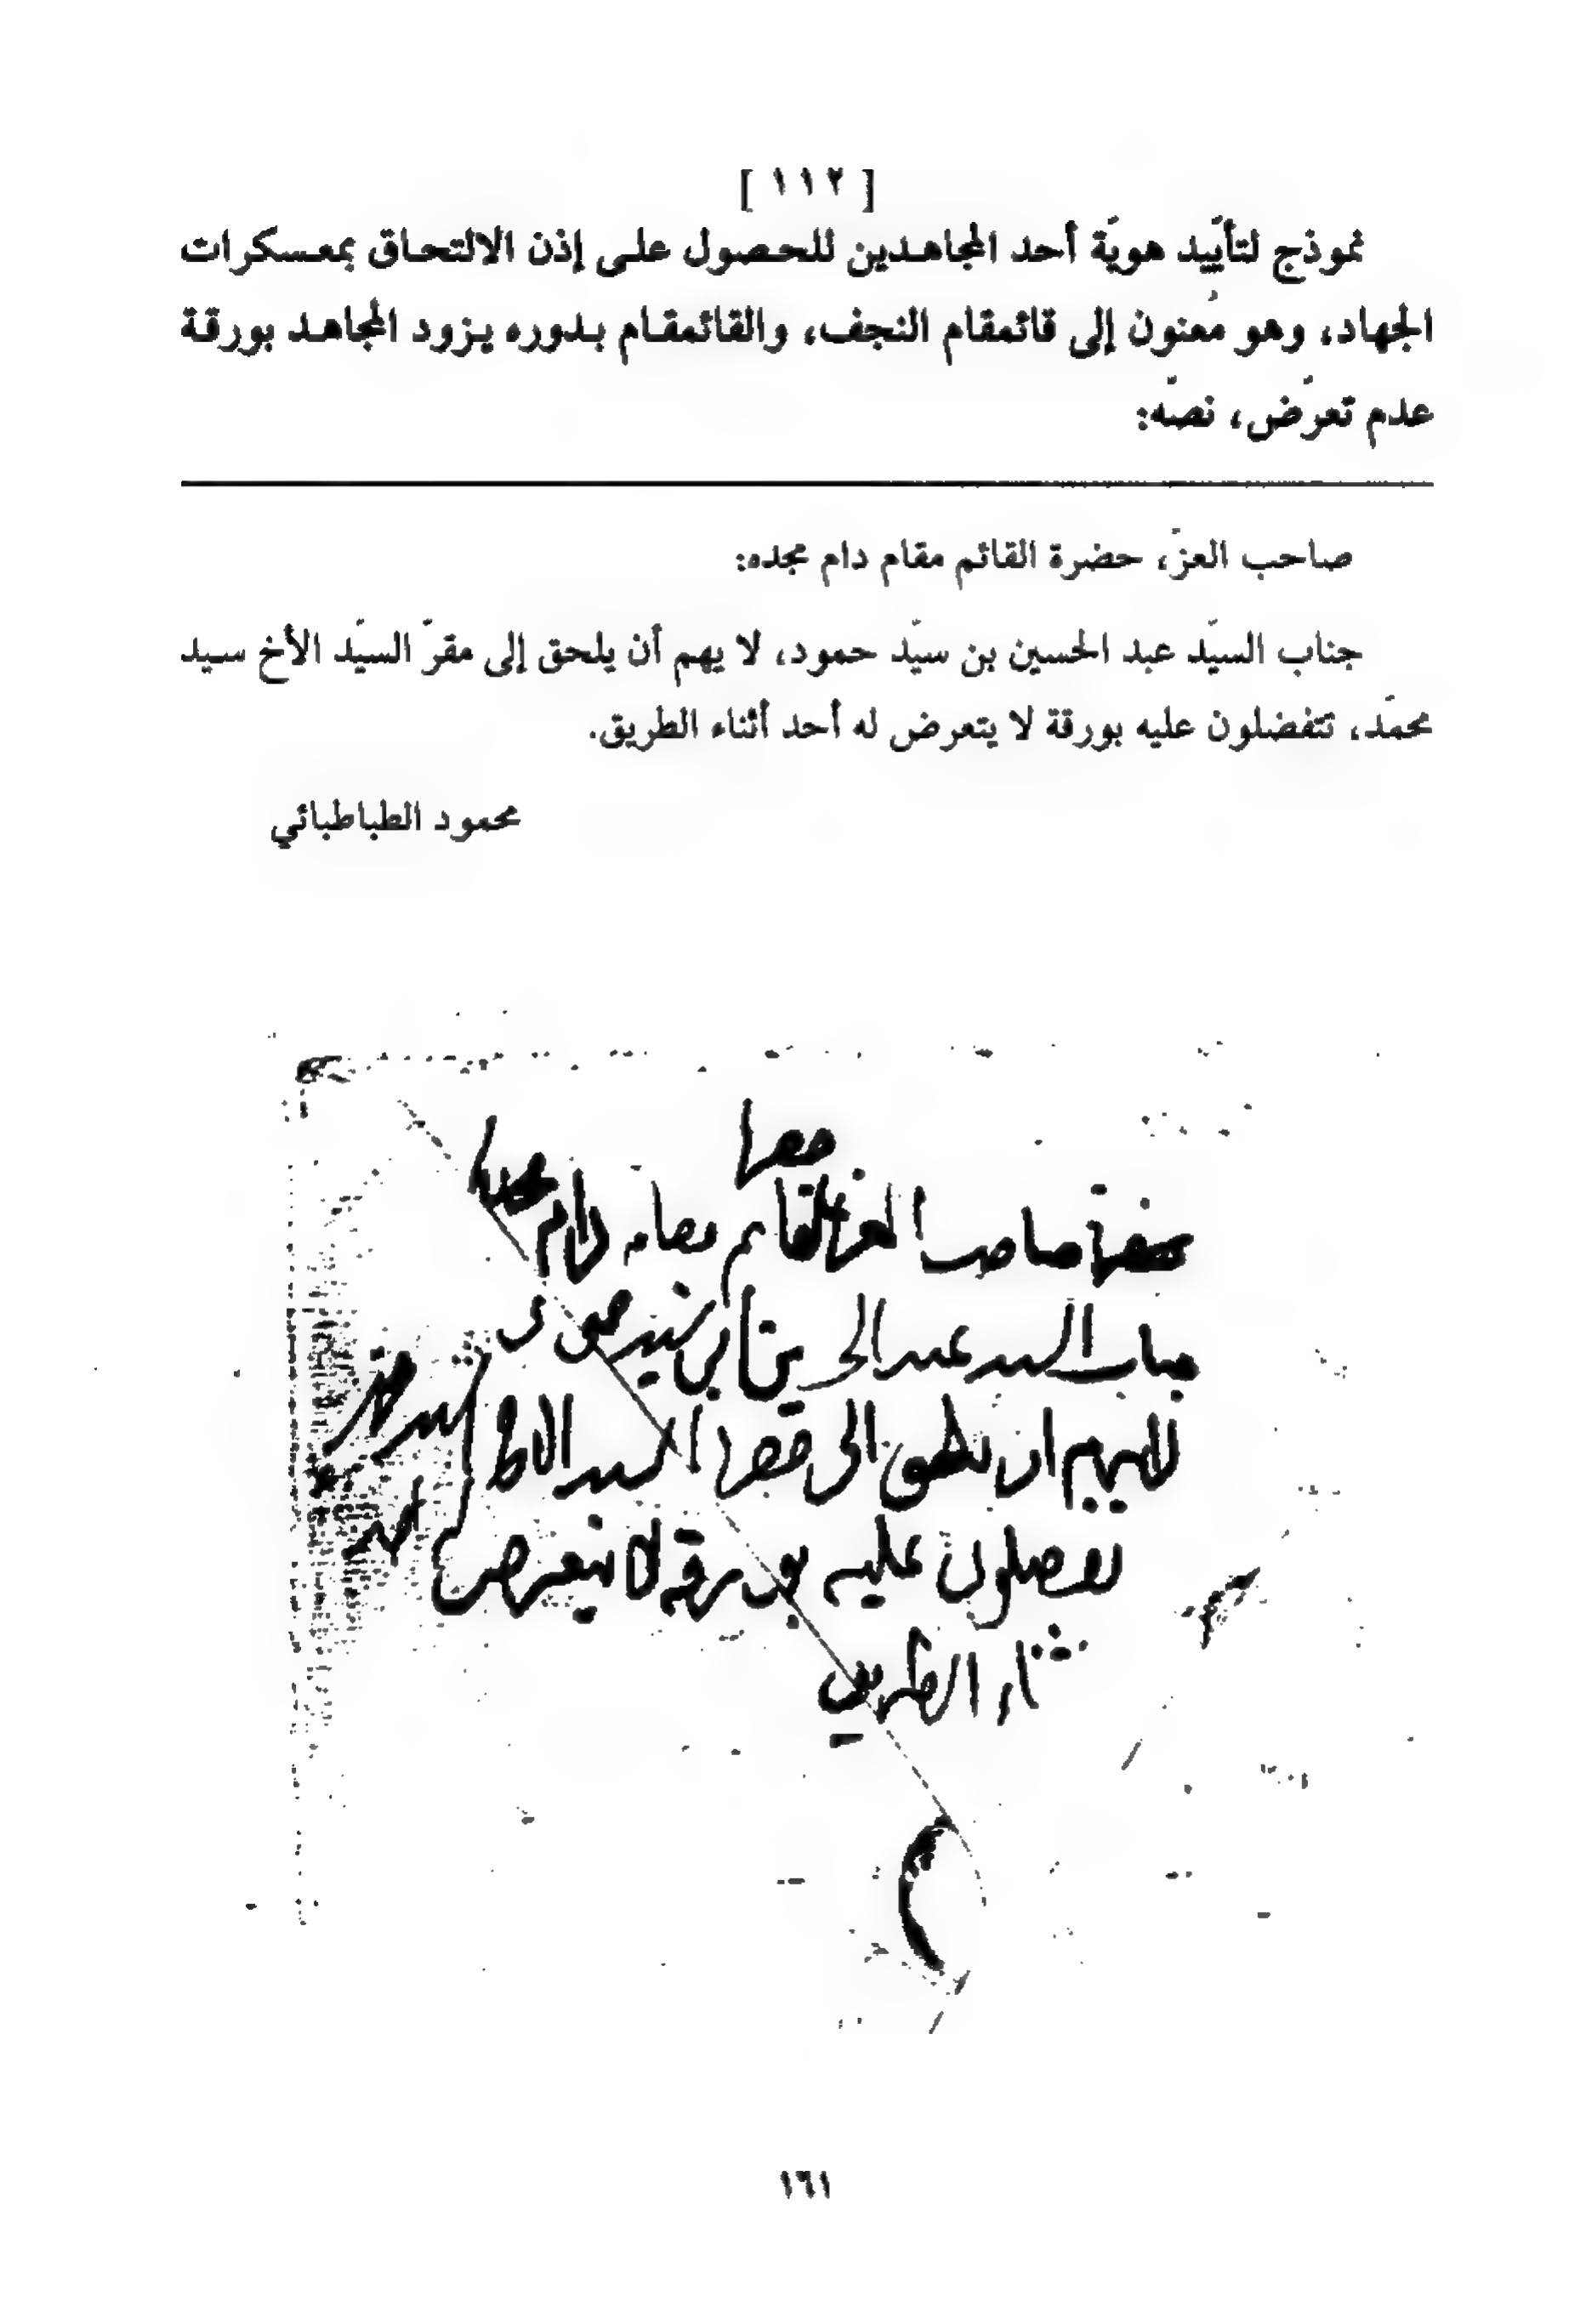 [ ١١٢ ]
نموذج لتأييد هويّة أحد المجاهدين للحصول على إذن الالتحاق بمعسكرات
الجهاد، وهو مُعنون إلى قائمقام النجف، والقائمقام بدوره يزود المجاهد بورقة
عدم تعرّض، نصّه:
صاحب العزّ، حضرة القائم مقام دام مجده:
جناب السيّد عبد الحسين بن سيّد حمود، لا يهم أن يلحق إلى مقرّ السيّد الأخ سيد
محمّد، تتفضلون عليه بورقة لا يتعرض له أحد أثناء الطريق.
محمود الطباطبائي
صاحب العز القائم مقام دام مجده
جناب السيد عبد الحسين ابن سيد حمود
ان يلحق الى مقر السيد الاخ سيد محمد
تفضلون عليه بورقة لا يتعرض له احد
ثناء الطريق
١٦١